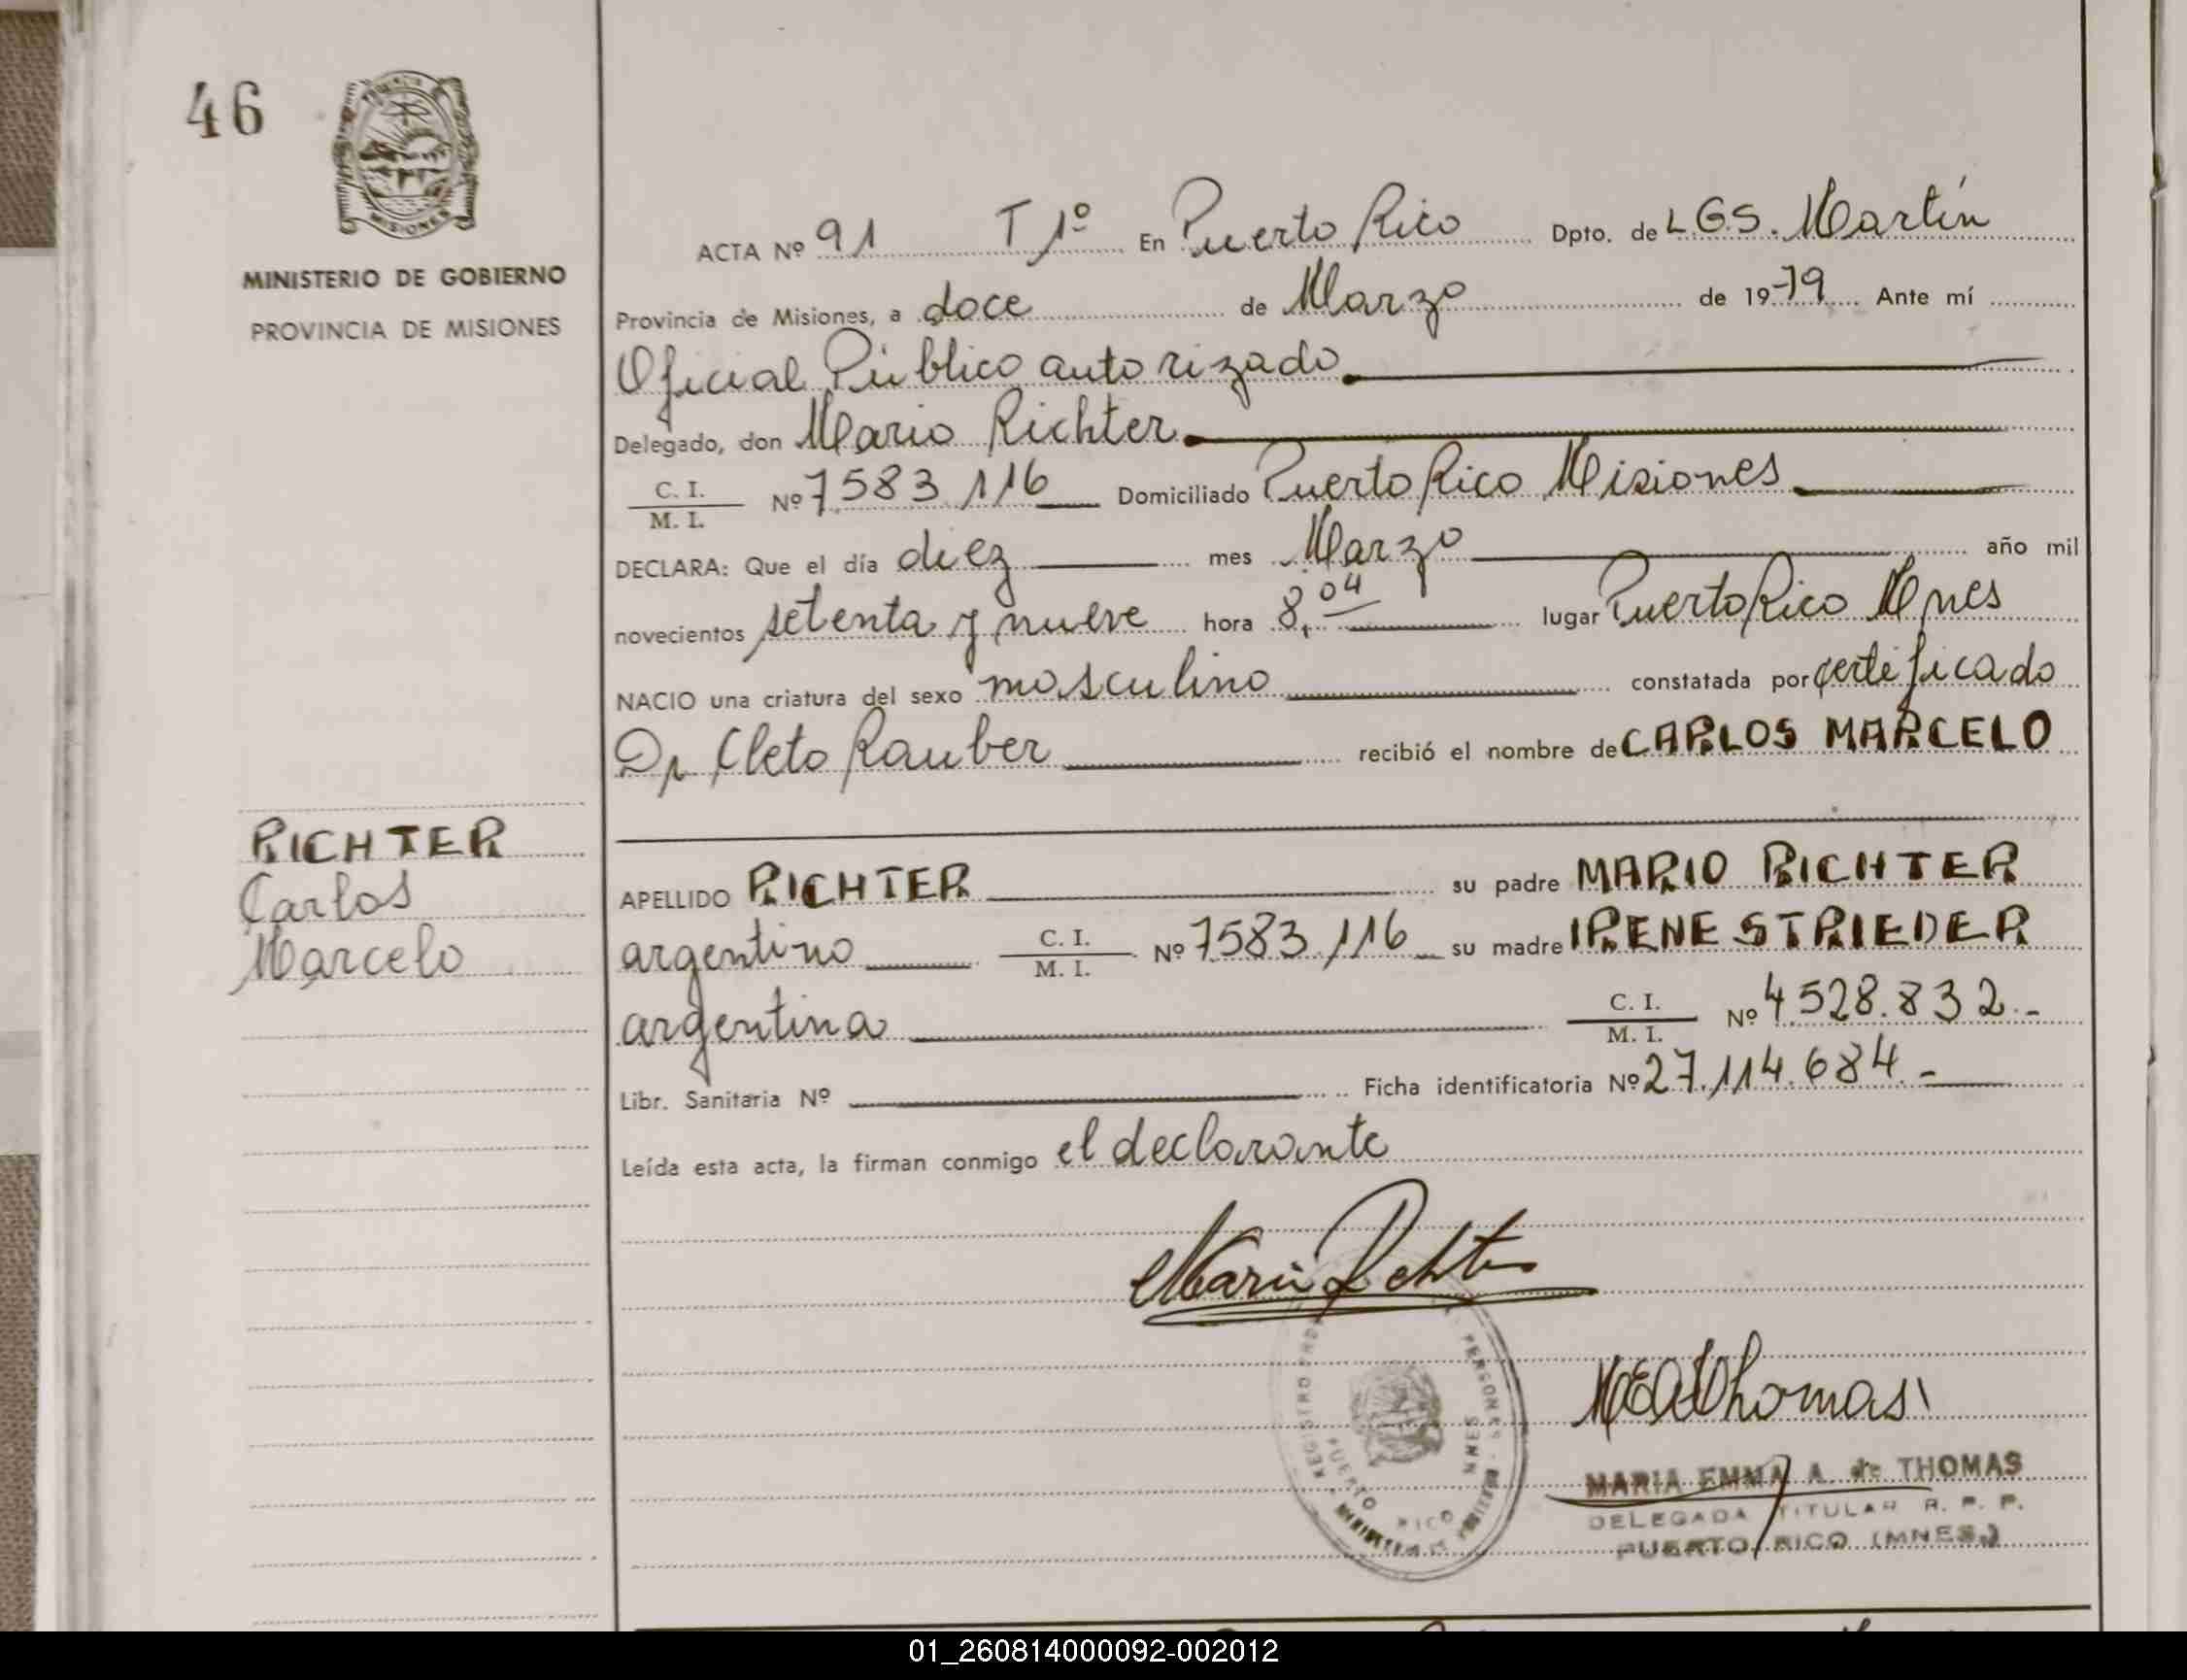 46
MINISTERIO DE GOBIERNO
PROVINCIA DE MISIONES
MISIONES
RICHTER
Carlos
Marcelo
ACTA Nº 91 T 1º En Puerto Rico Dpto. de L.G.S. Martín
Provincia de Misiones, a doce de Marzo de 1979 Ante mí
Oficial Público autorizado
Delegado, don Mario Richter
C. I. / M. I. Nº 7.583.116 Domiciliado Puerto Rico Misiones
DECLARA: Que el día diez mes Marzo año mil
novecientos setenta y nueve hora 8,04 lugar Puerto Rico Mnes
NACIO una criatura del sexo masculino constatada por certificado
Dr Cleto Rauber recibió el nombre de CARLOS MARCELO
APELLIDO RICHTER su padre MARIO RICHTER
argentino C. I. / M. I. Nº 7583.116 su madre IRENE STRIEDER
argentina C. I. / M. I. Nº 4.528.832.-
Libr. Sanitaria Nº Ficha identificatoria Nº 27.114.684.-
Leída esta acta, la firman conmigo el declarante
Mario Richter
REGISTRO PERSONAS
PUERTO RICO MNES
MEAdThomas
MARIA EMMA A. de THOMAS
DELEGADA TITULAR R. P. P.
PUERTO RICO (MNES.)
01_260814000092-002012